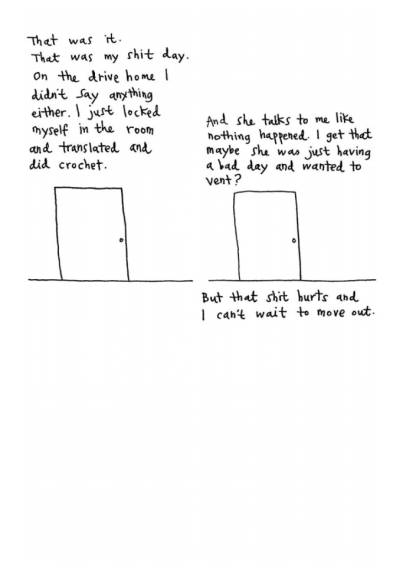 That was it.
That was my shit day.
On the drive home I
didn't say anything
either. I just locked
myself in the room
and translated and
did crochet.
And she talks to me like
nothing happened. I get that
maybe she was just having
a bad day and wanted to
vent?
But that shit hurts and
I can't wait to move out.